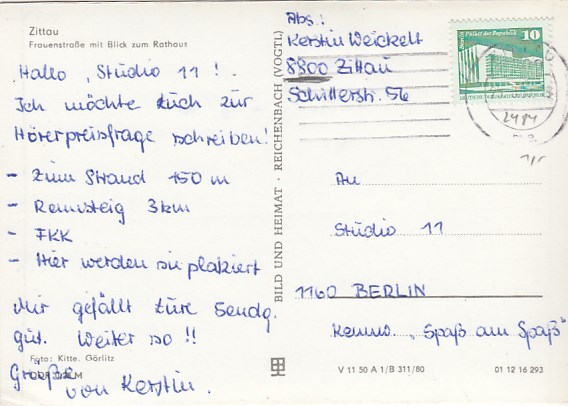 Zittau
Frauenstraße mit Blick zum Rathaus
Hallo, Studio 11!
Ich möchte Euch zur
Hörerpreisfrage schreiben!
- Zum Strand 150 m
- Rennsteig 3km
- FKK
- Hier werden sie plakiert
Mir gefällt Eure Sendg.
gut. Weiter so!!
Grüße
von Kerstin.
Foto: Kitte, Görlitz
BILD UND HEIMAT · REICHENBACH (VOGTL)
Abs:
Kerstin Weickelt
8800 Zittau
Schillerstr. 56
Palast der Republik 10
An
Studio 11
1160 BERLIN
Kennw. „Spaß am Spaß"
V 11 50 A 1/B 311/80
01 12 16 293